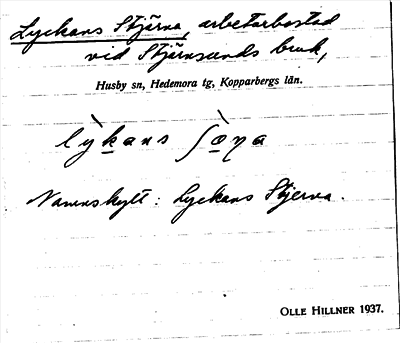 Lyckans Stjärna, arbetarbostad
vid Stjärnsunds bruk,
Husby sn, Hedemora tg, Kopparbergs län.
lỳkans ʃæ̀ɳa
Namnskylt: Lyckans Stjerna.
OLLE HILLNER 1937.